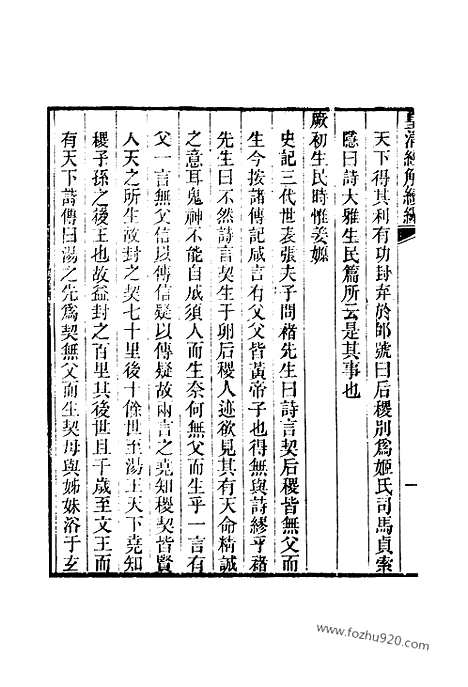 皇清經解續編
天下得其利有功封弃於邰號曰后稷別爲姬氏司馬貞索
隱曰詩大雅生民篇所云是其事也
厥初生民時惟姜嫄
史記三代世表張夫子問褚先生曰詩言契后稷皆無父而
生今按諸傳記咸言有父父皆黃帝子也得無與詩繆乎褚
先生曰不然詩言契生于卵后稷人迹欲見其有天命精誠
之意耳鬼神不能自成須人而生奈何無父而生乎一言有
父一言無父信以傳信疑以傳疑故兩言之堯知稷契皆賢
人天之所生故封之契七十里後十餘世至湯王天下堯知
稷子孫之後王也故益封之百里其後世且千歲至文王而
有天下詩傳曰湯之先爲契無父而生契母與姊妹浴于玄
一
www.fozhu920.com